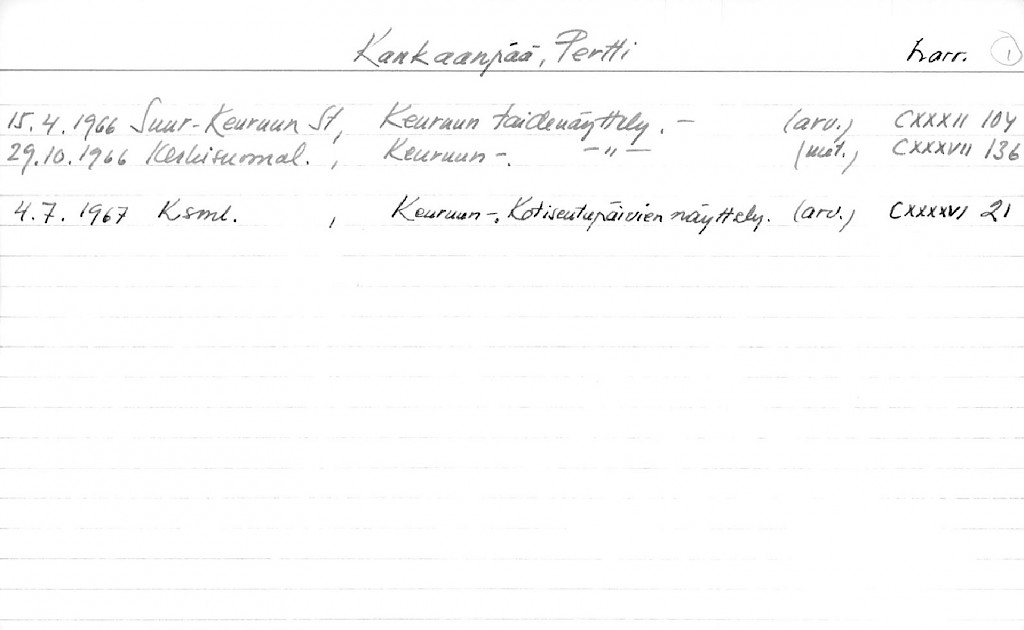 Kankaanpää, Pertti harr. 1
15.4.1966 Suur-Keuruun St, Keuruun taidenäyttely. — (arv.) CXXXII 104
29.10.1966 Keskisuomal. , Keuruun -. — " — (mat.) CXXXVII 136
4.7. 1967 Ksml. , Keuruun -, Kotiseutupäivien näyttely. (arv.) CXXXXVI 21